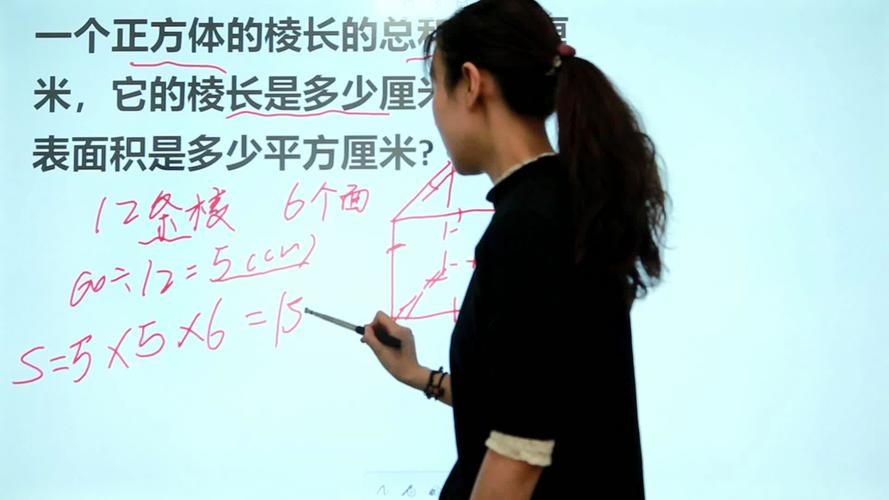 一个正方体的棱长的总
米，它的棱长是多少厘
表面积是多少平方厘米?
12条棱 6个面
60÷12=5(cm)
S=5×5×6=15